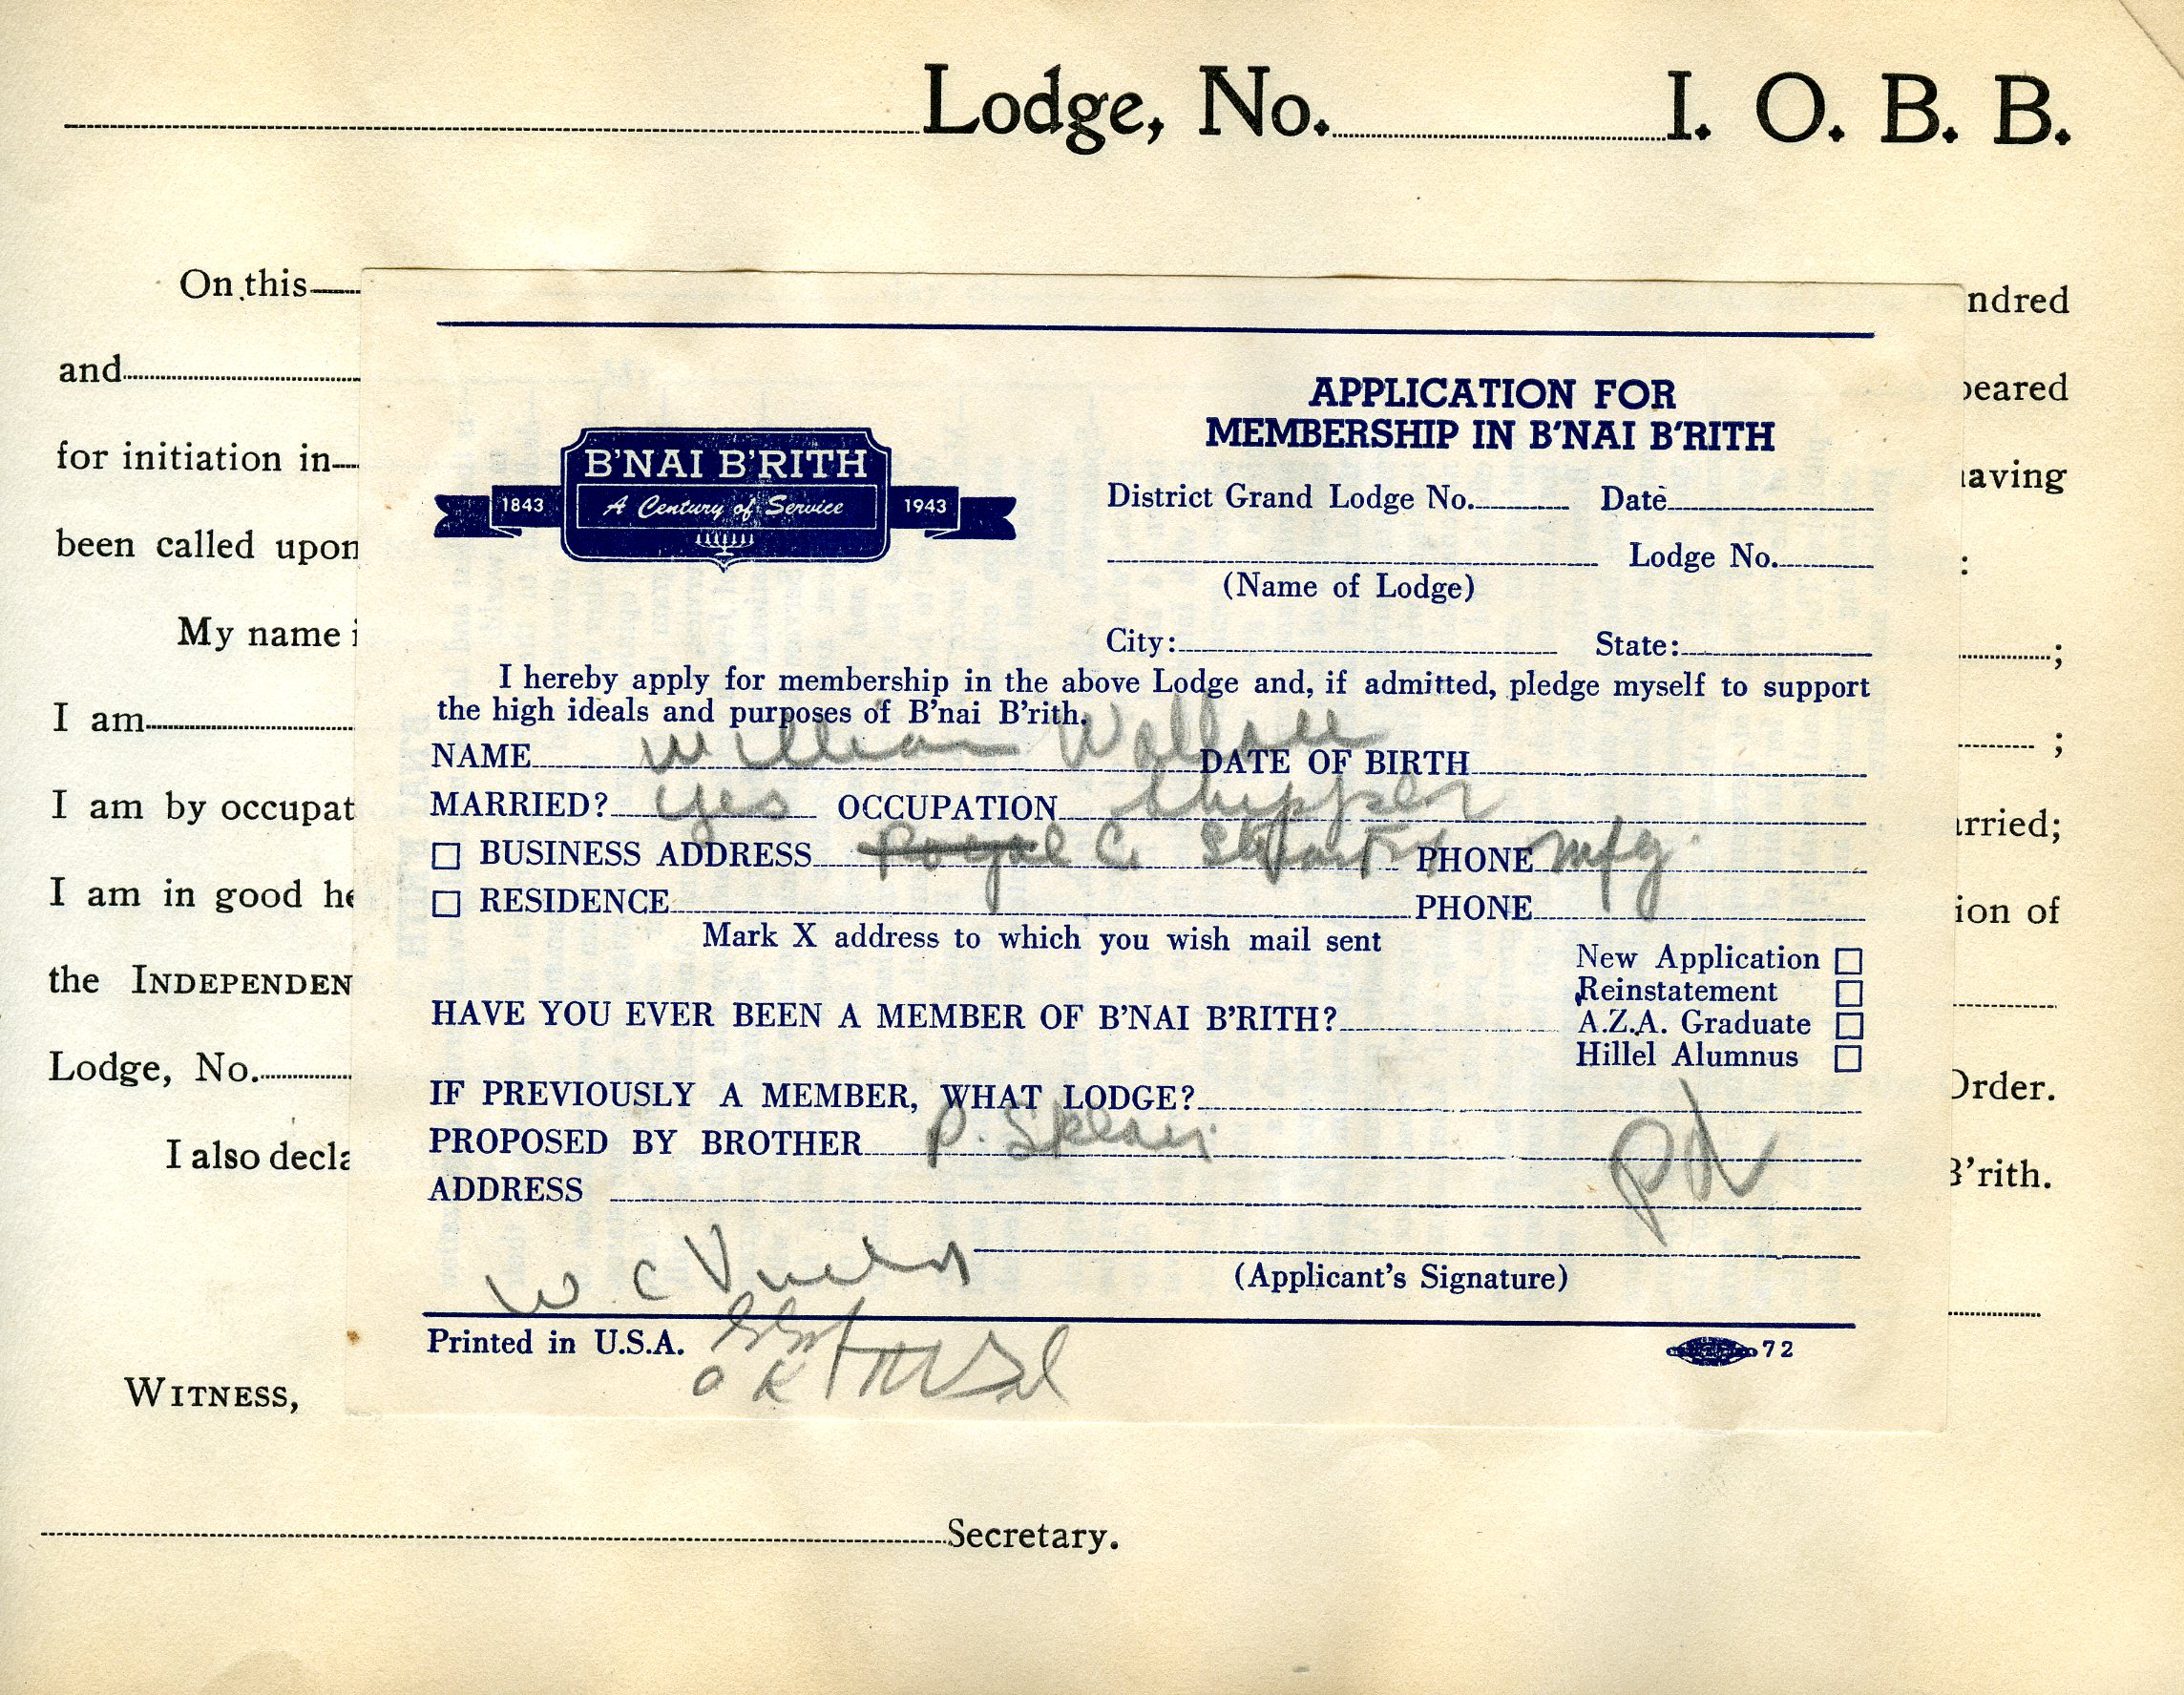 Lodge, No. I. O. B. B.
On this ndred
and peared
for initiation in aving
been called upon :
My name i ;
I am ;
I am by occupat rried;
I am in good he ion of
the INDEPENDEN
Lodge, No. Order.
I also decla B'rith.
WITNESS,
Secretary.
B'NAI B'RITH
1843 A Century of Service 1943
APPLICATION FOR
MEMBERSHIP IN B'NAI B'RITH
District Grand Lodge No. Date
Lodge No.
(Name of Lodge)
City: State:
I hereby apply for membership in the above Lodge and, if admitted, pledge myself to support
the high ideals and purposes of B'nai B'rith.
NAME William Wallace DATE OF BIRTH
MARRIED? yes OCCUPATION Shipper
BUSINESS ADDRESS Royal C. PHONE mfg.
RESIDENCE PHONE
Mark X address to which you wish mail sent
New Application
Reinstatement
HAVE YOU EVER BEEN A MEMBER OF B'NAI B'RITH? A.Z.A. Graduate
Hillel Alumnus
IF PREVIOUSLY A MEMBER, WHAT LODGE?
PROPOSED BY BROTHER P. Sklar
ADDRESS
W C
(Applicant's Signature)
Printed in U.S.A. 72
OK